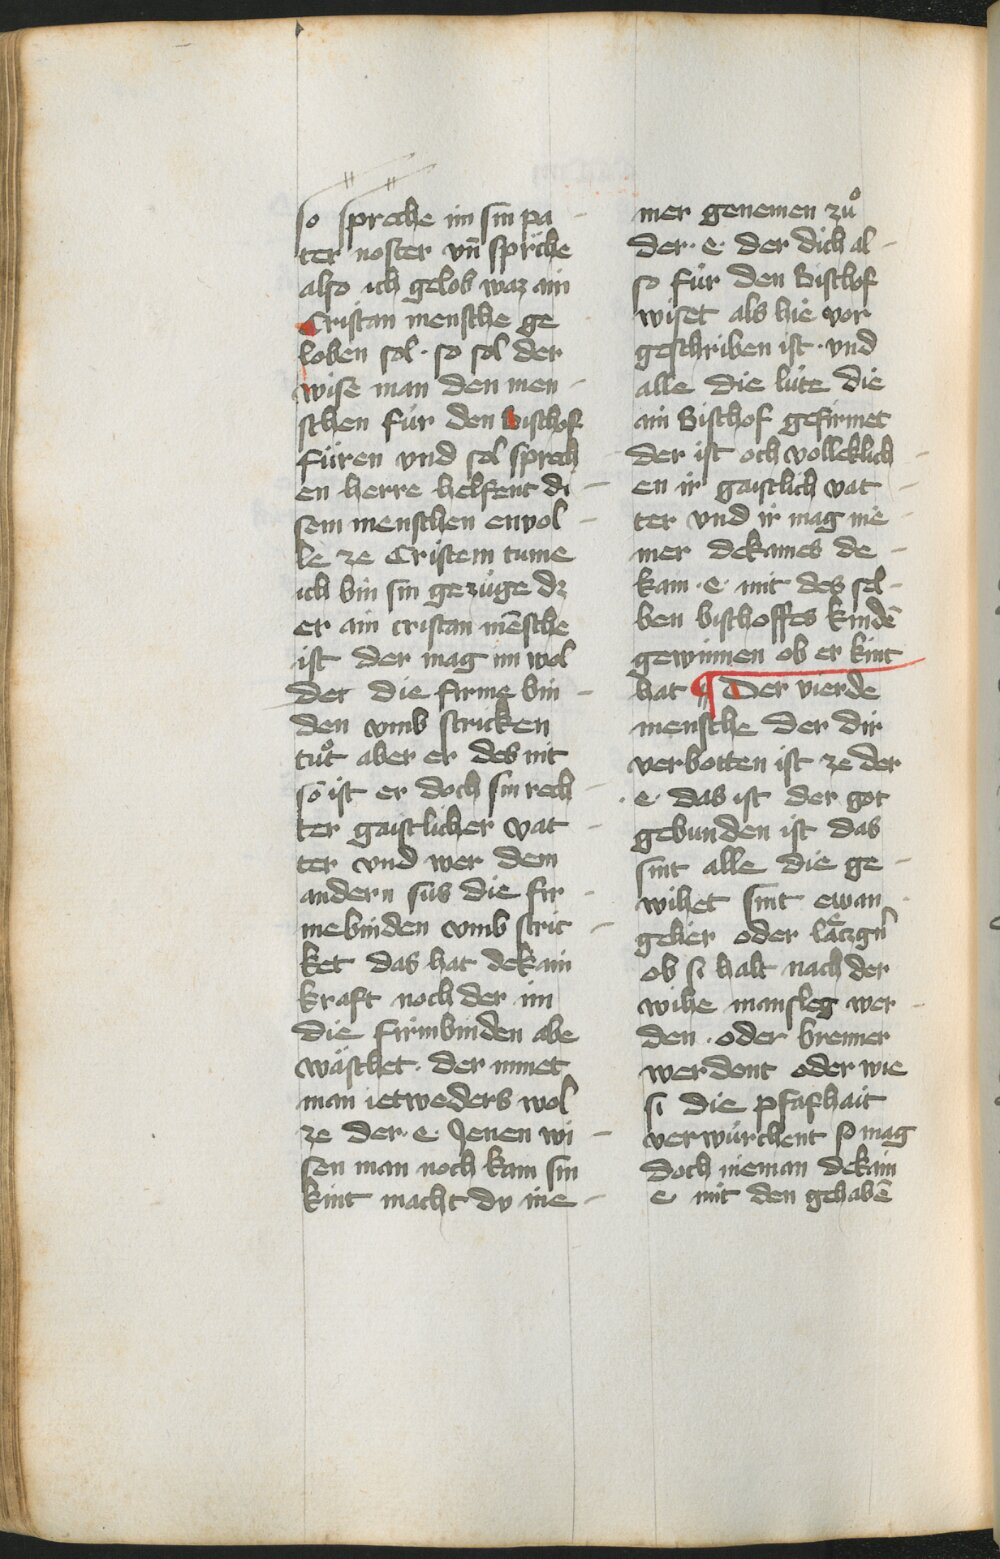 so spreche im sin pa
ter noster vn̄ spräche
also ich gelob waz ain
Cristan mensche ge
loben sol · so sol der
wise man den men-
schen für den Bischof
füren vnd sol sprech
en herre helfent di-
sem menschen envol-
le ze Cristem tume
ich bin sin gezüge dz
er ain cristan mēsche
ist der mag im wol
der die firme bin-
den vmb stricken
tuͦt aber er des nit
so ist er doch sin rech-
ter gaistlicher vat-
ter vnd wer dem
andern sus die fir-
mebinden vmb stric-
ket das hat dekain
kraft noch der im
die firmbinden abe
wäschet · der nimet
man ietweders wol
ze der · e · Jenen wi-
sen man noch kain sin
kint macht du nie-
mer genemen zuͦ
der · e · der dich al-
so für den Bischof
wiset als hie vor
geschriben ist · vnd
alle die lüte die
ain Bischof gefirmet
der ist och volleklich-
en ir gaistlich vat-
ter vnd ir mag nie-
mer dekaines de-
kain · e · mit des sel-
ben bischoffes kindē
gewinnen ob er kint
hat ¶ Der vierde
mensche der dir
verbotten ist ze der
· e · das ist der got
gebunden ist das
sint alle die ge-
wihet sint ewan
gelier oder läczgn̄
ob si halt nach der
wihe mansleg wer-
den · oder brenner
werdent oder wie
si die pfafhait
verwürchent so mag
doch nieman dekain
e mit den gehabē